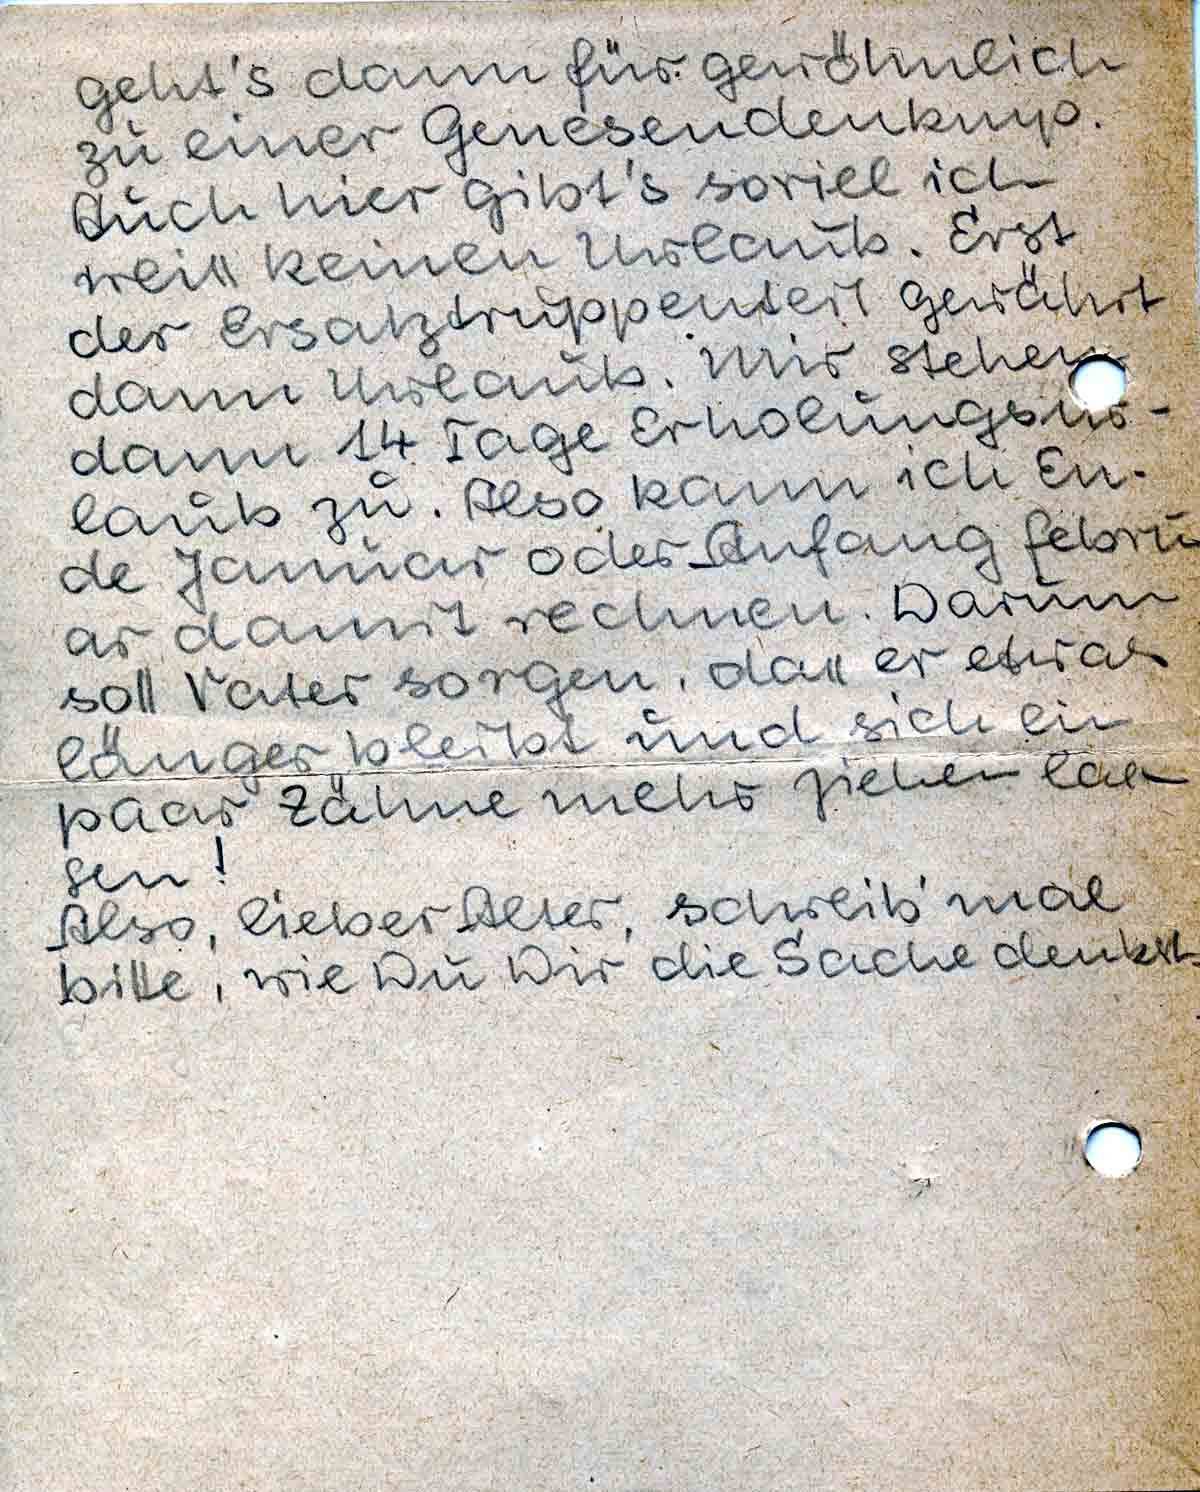 geht's dann für gewöhnlich
zu einer Genesendenkmp.
Auch hier gibt's soviel ich
weiß keinen Urlaub. Erst
der Ersatztruppenteil gewährt
dann Urlaub. Mir stehen
dann 14 Tage Erholungsur-
laub zu. Also kann ich En-
de Januar oder Anfang Febru
ar damit rechnen. Darum
soll Vater sorgen, daß er etwas
länger bleibt und sich ein
paar Zähne mehr ziehen las
sen!
Also, lieber Alter, schreib' mal
bitte, wie Du Dir die Sache denkst.